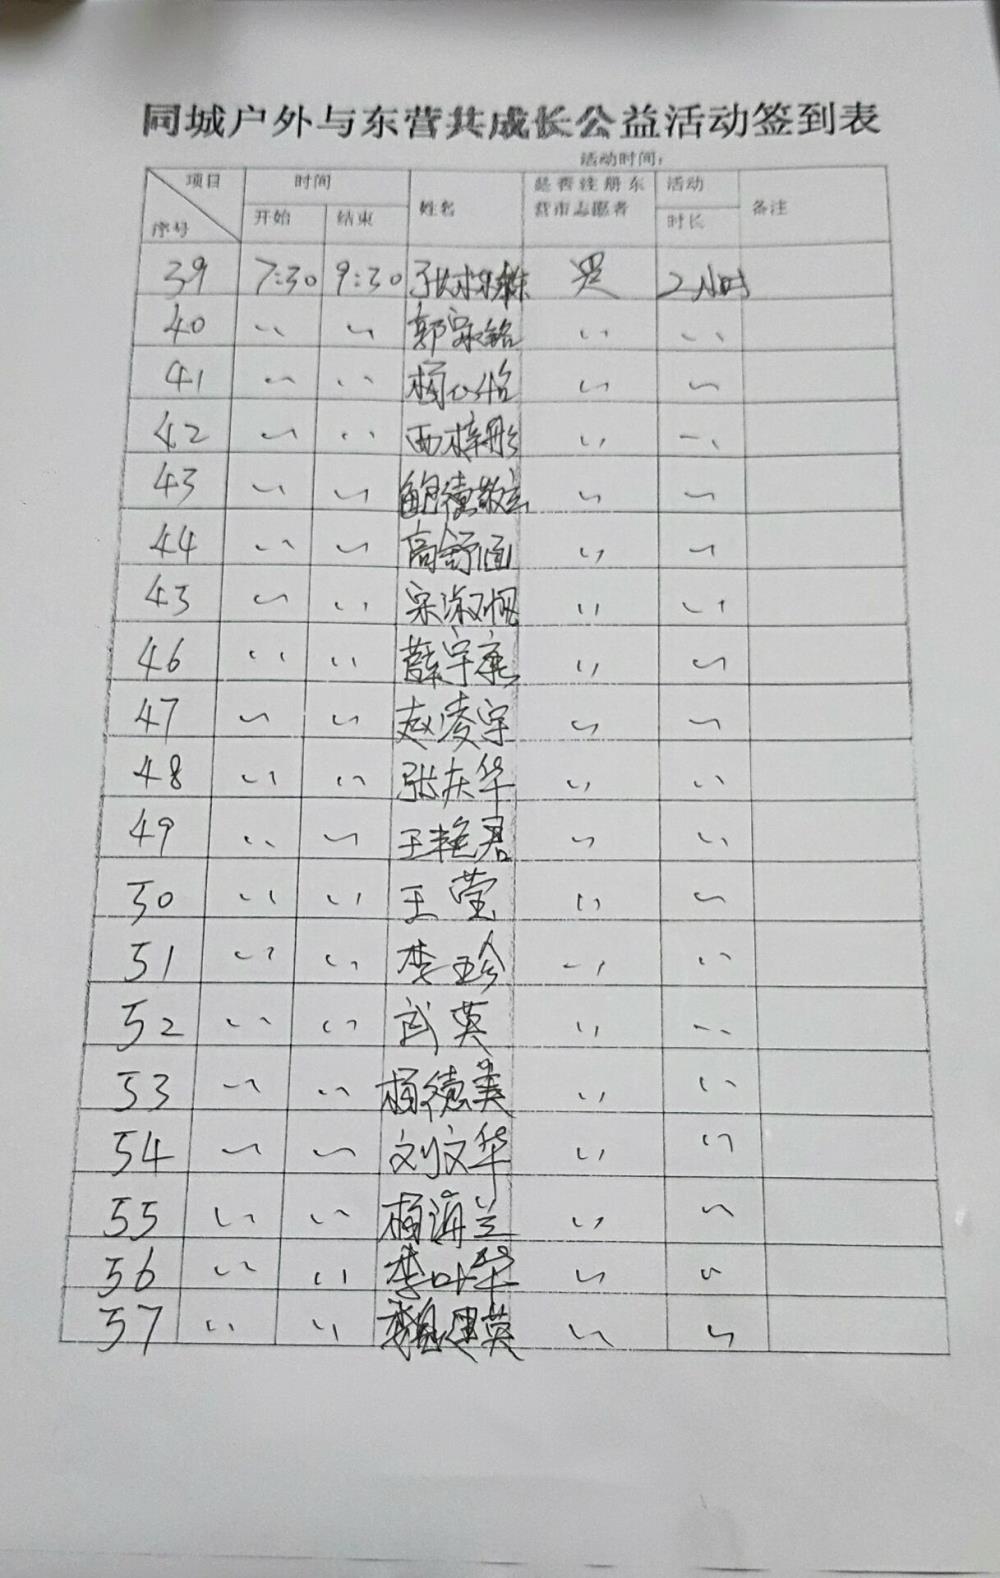 同城户外与东营共成长公益活动签到表
活动时间：
项目 时间 姓名 是否注册东营市志愿者 活动时长 备注
序号 开始 结束
39 7:30 9:30 是 2小时
40 〃 〃 郭家铭 〃 〃
41 〃 〃 杨心怡 〃 〃
42 〃 〃 西梓彤 〃 〃
43 〃 〃 〃 〃
44 〃 〃 高舒涵 〃 〃
43 〃 〃 〃 〃
46 〃 〃 〃 〃
47 〃 〃 赵凌宇 〃 〃
48 〃 〃 张庆华 〃 〃
49 〃 〃 王艳君 〃 〃
50 〃 〃 王莹 〃 〃
51 〃 〃 李亚珍 〃 〃
52 〃 〃 武英 〃 〃
53 〃 〃 杨德美 〃 〃
54 〃 〃 刘文华 〃 〃
55 〃 〃 杨海兰 〃 〃
56 〃 〃 李叶华 〃 〃
57 〃 〃 〃 〃